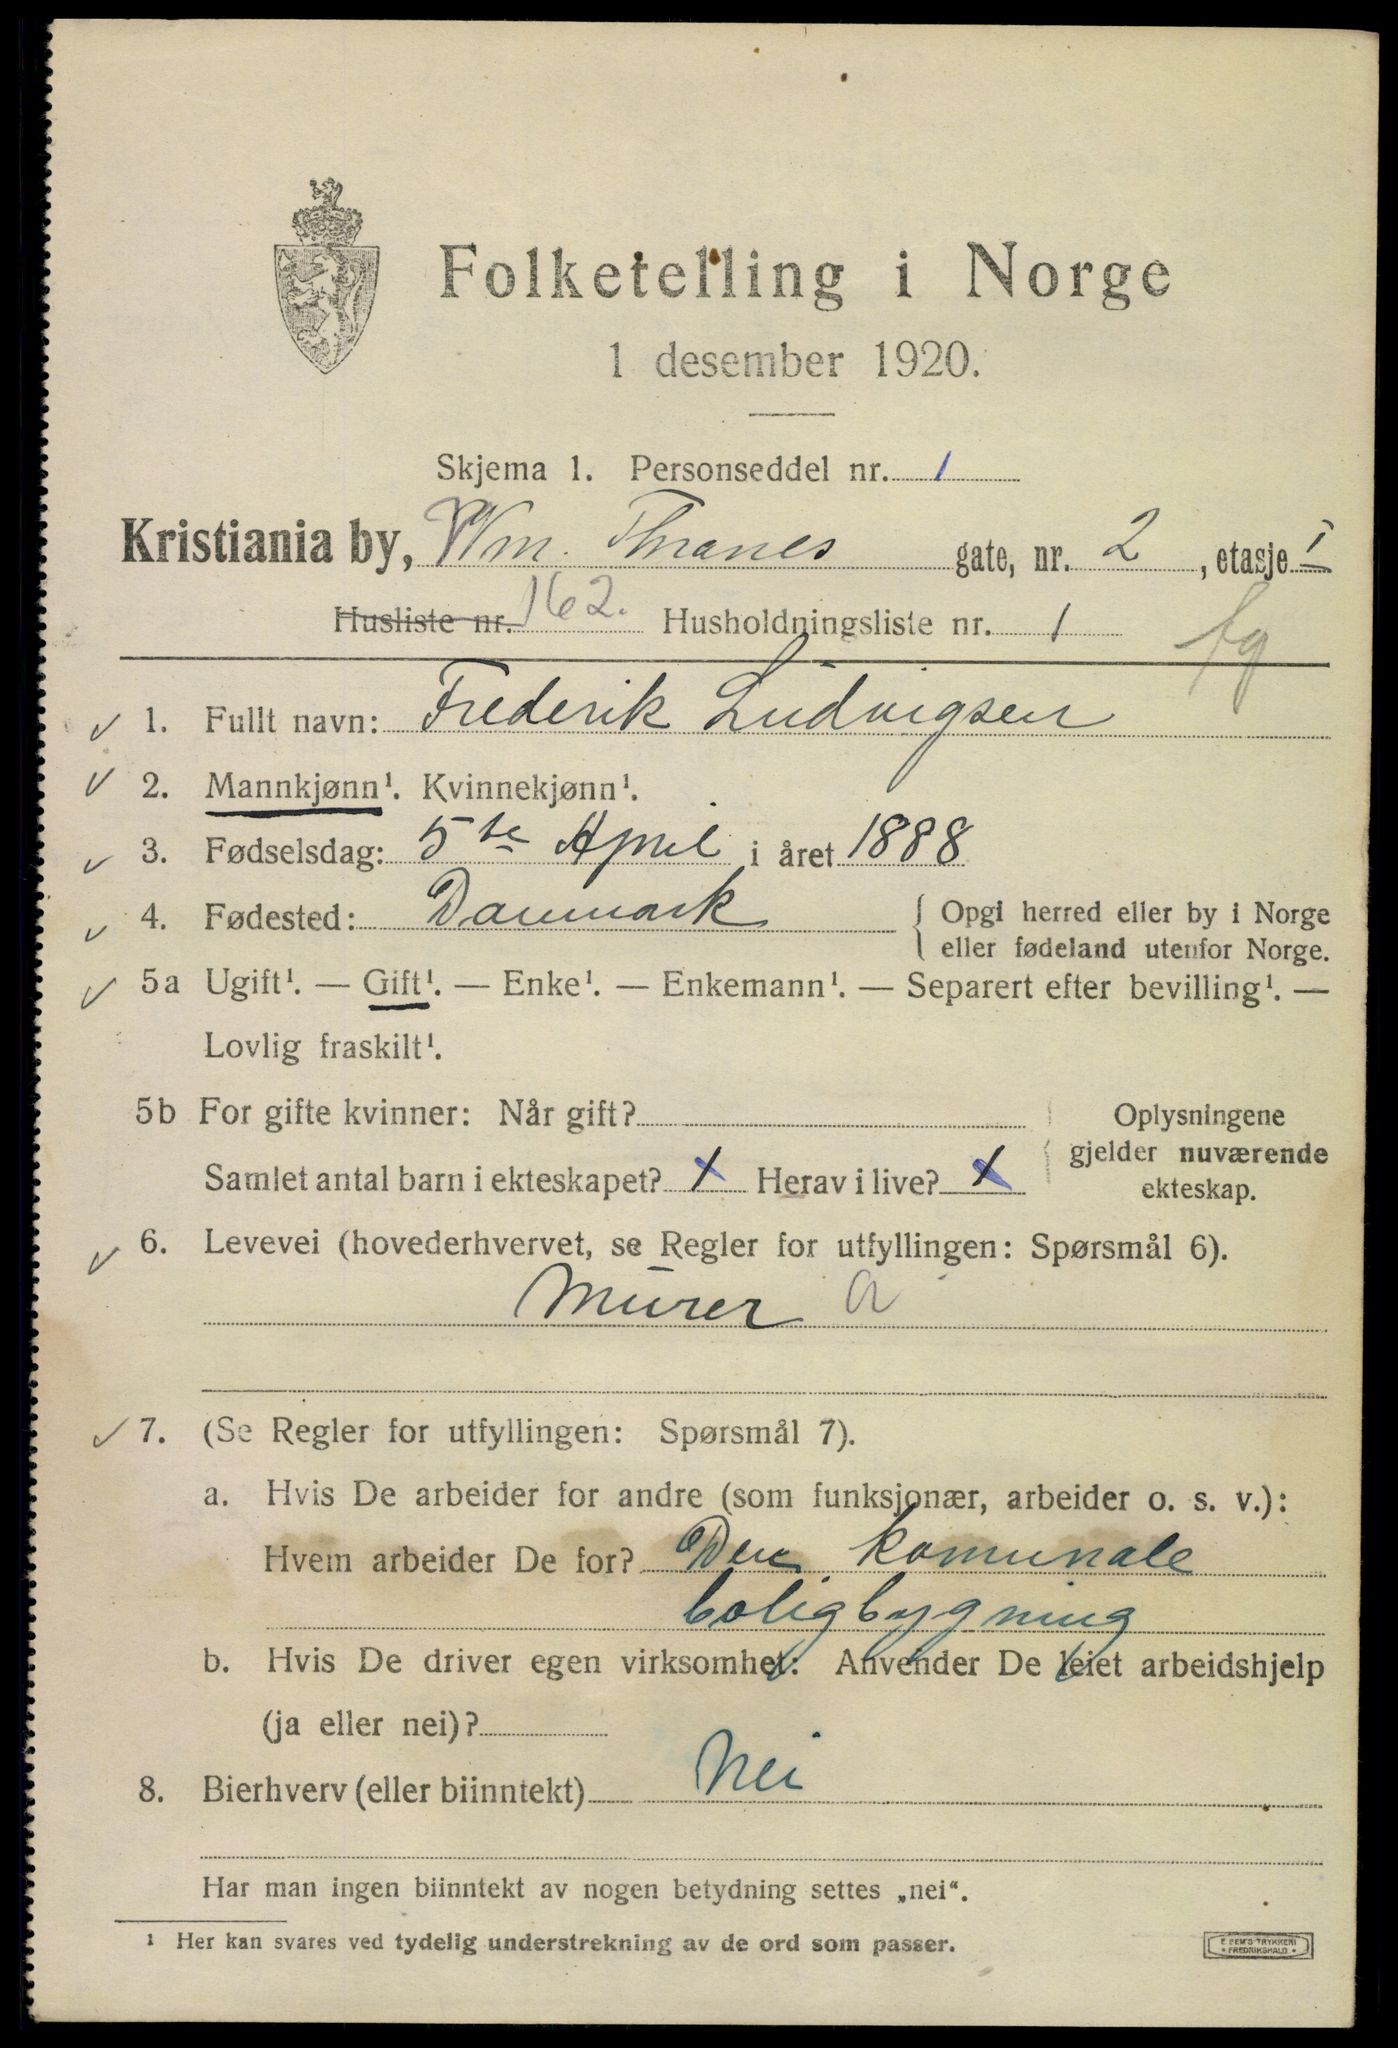 Folketelling i Norge
1 desember 1920.
Skjema 1. Personseddel nr. 1
Kristiania by, Wm. Thranes gate, nr. 2, etasje I
Husliste nr. 162. Husholdningsliste nr. 1
fg
1. Fullt navn: Frederik Ludvigsen
2. Mannkjønn¹. Kvinnekjønn¹.
3. Fødselsdag: 5te April i året 1888
4. Fødested: Danmark { Opgi herred eller by i Norge
eller fødeland utenfor Norge.
5a Ugift¹. — Gift¹. — Enke¹. — Enkemann¹. — Separert efter bevilling¹. —
Lovlig fraskilt¹.
5b For gifte kvinner: Når gift? Oplysningene
gjelder nuværende
Samlet antal barn i ekteskapet? 1 Herav i live? 1 ekteskap.
6. Levevei (hovederhvervet, se Regler for utfyllingen: Spørsmål 6).
Murer a
7. (Se Regler for utfyllingen: Spørsmål 7).
a. Hvis De arbeider for andre (som funksjonær, arbeider o. s. v.):
Hvem arbeider De for? Den komunale
boligbygning
b. Hvis De driver egen virksomhet: Anvender De leiet arbeidshjelp
(ja eller nei)?
8. Bierhverv (eller biinntekt) Nei
Har man ingen biinntekt av nogen betydning settes „nei“.
¹ Her kan svares ved tydelig understrekning av de ord som passer.
E. SEM'S TRYKKERI
• FREDRIKSHALD •